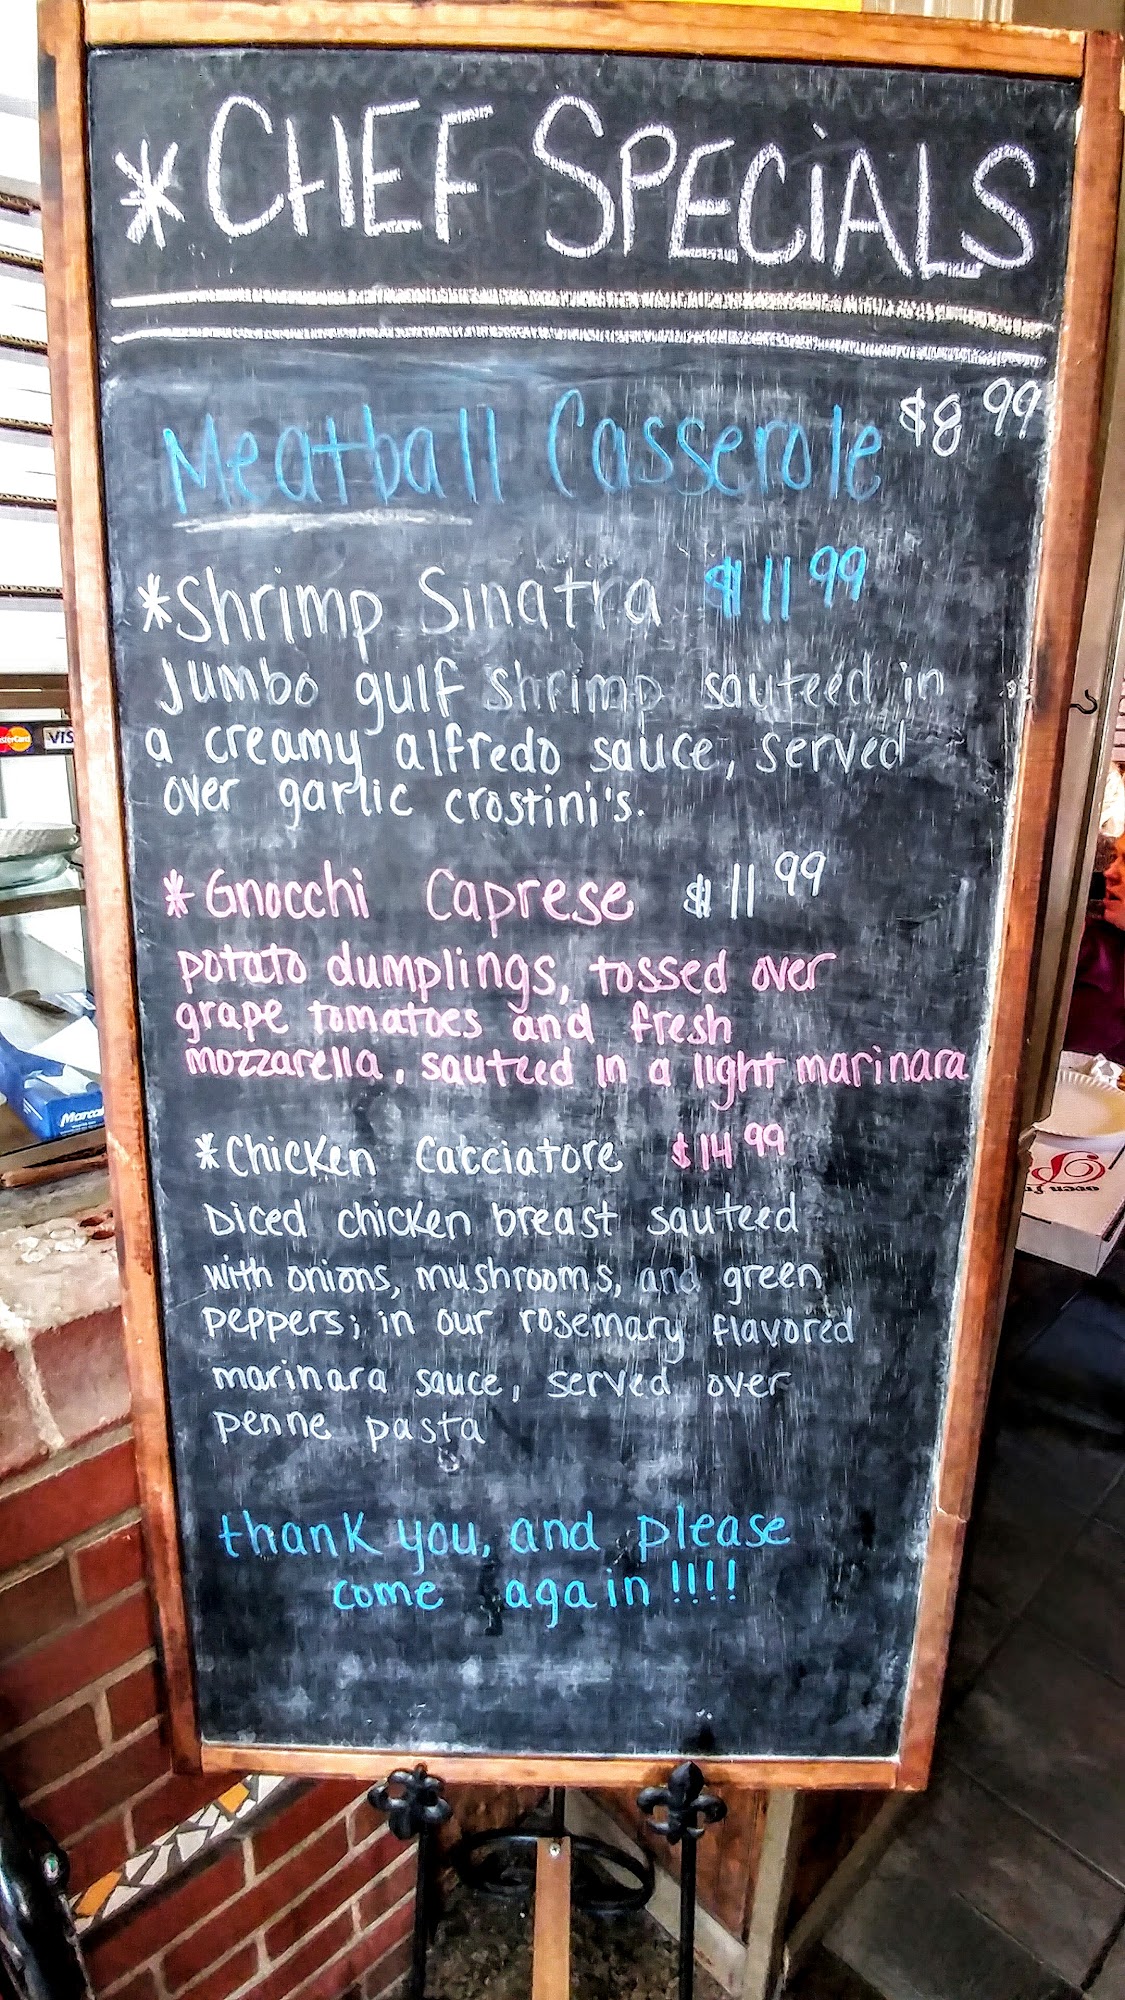 *CHEF SPECiALS
Meatball Casserole $8 99
*Shrimp Sinatra $11 99
Jumbo gulf shrimp sauteed in
a creamy alfredo sauce, served
over garlic crostini's.
*Gnocchi Caprese $11 99
potato dumplings, tossed over
grape tomatoes and fresh
mozzarella, sauteed in a light marinara
*Chicken Cacciatore $14 99
Diced chicken breast sauteed
with onions, mushrooms, and green
peppers; in our rosemary flavored
marinara sauce, served over
penne pasta
thank you, and please
come again!!!!
VIS
Marcal